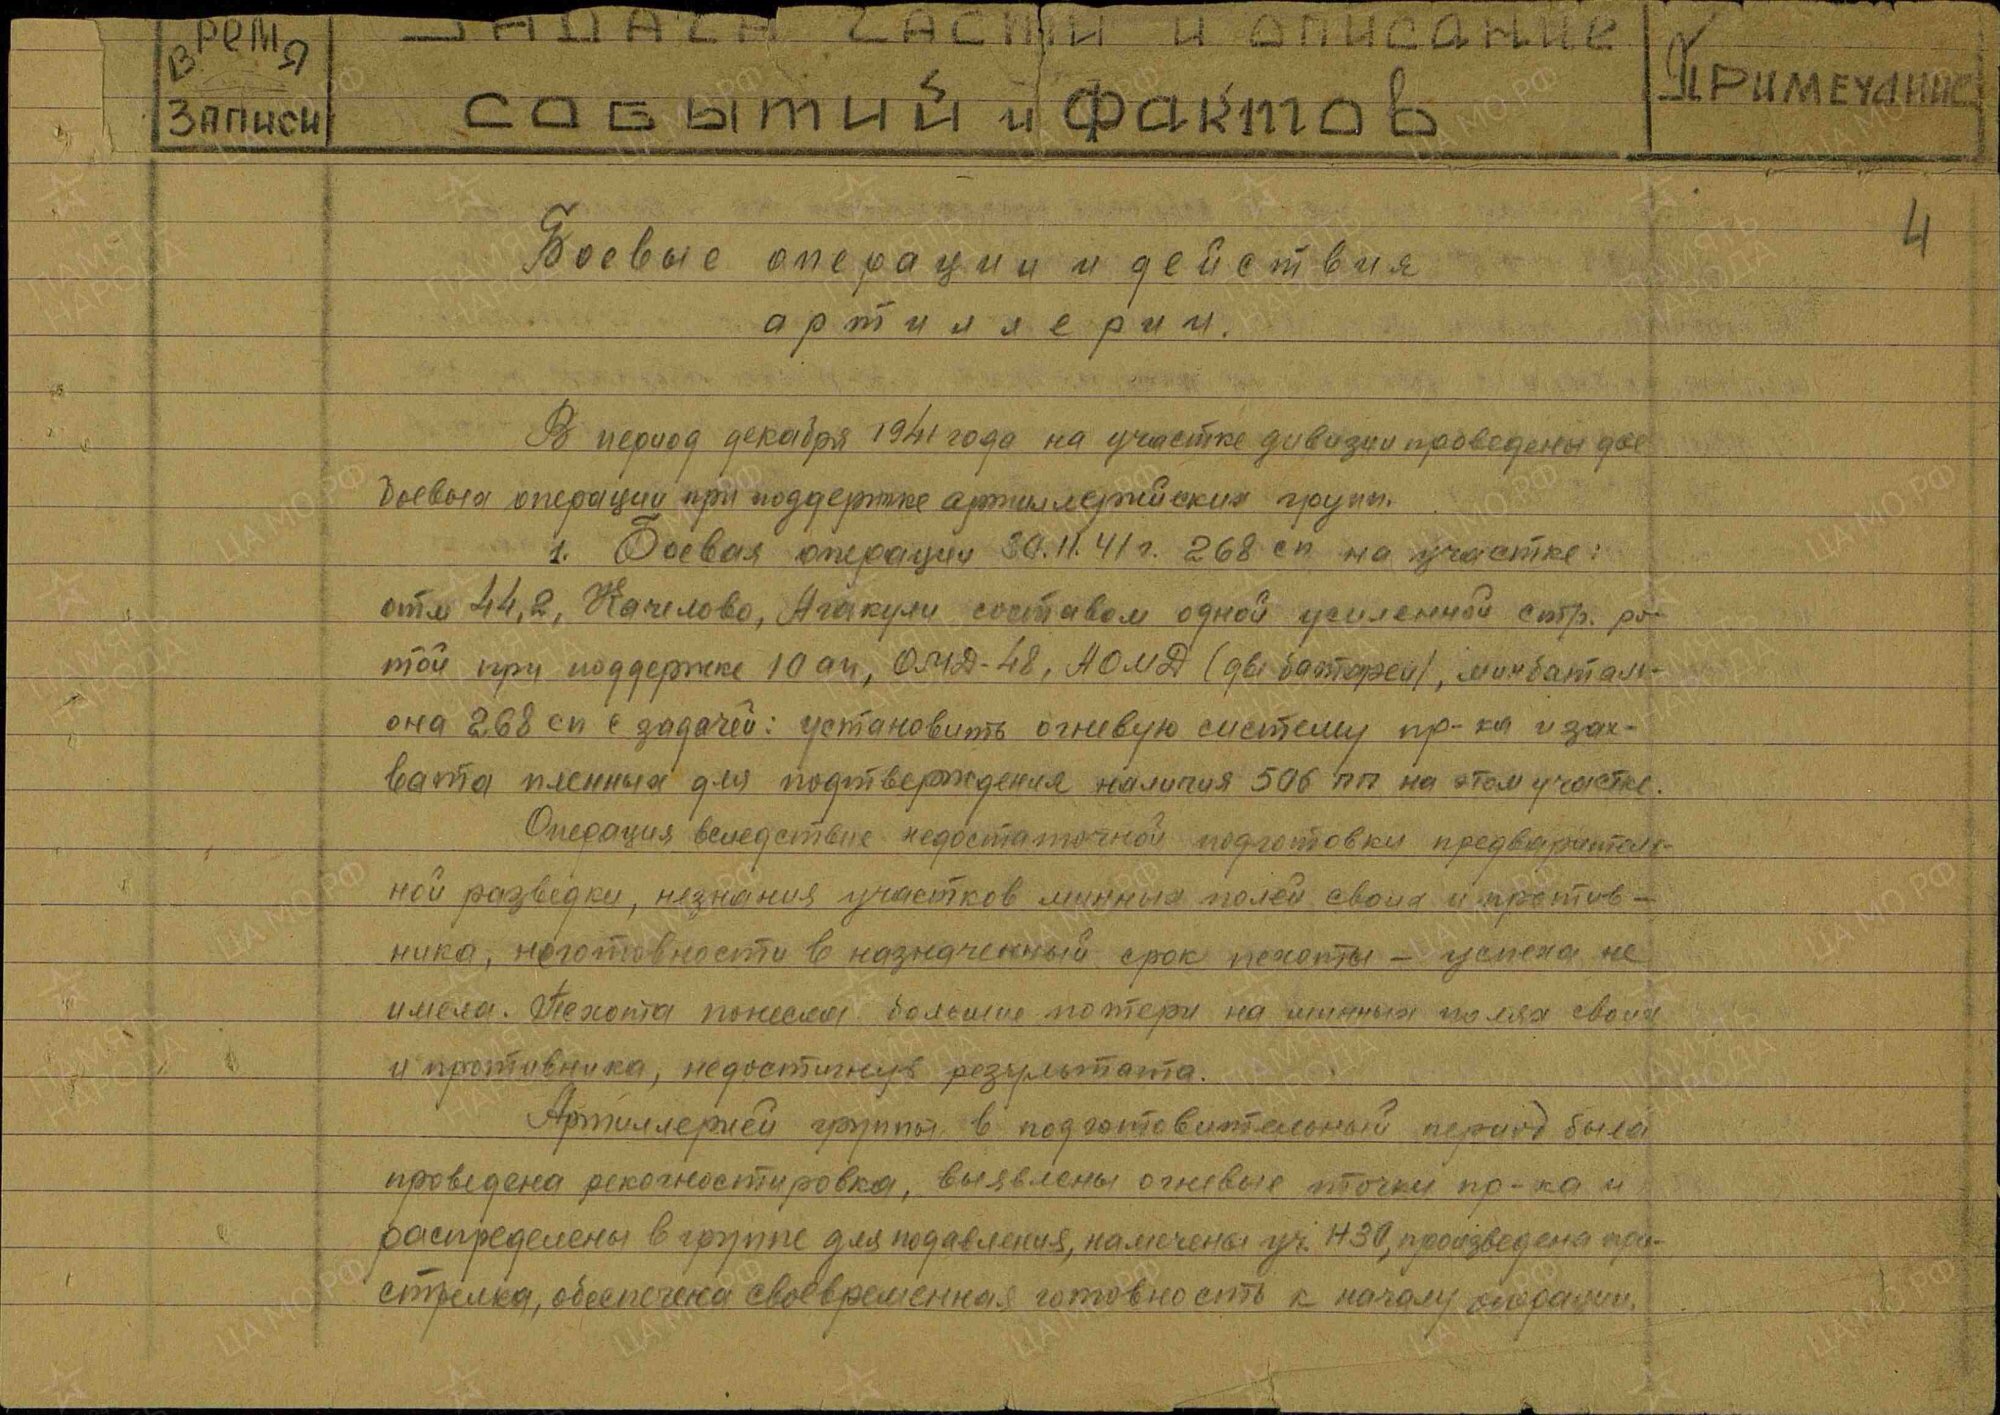 Время записи
Задачи части и описание
событий и фактов
Примечание
4
Боевые операции и действия
артиллерии.
В период декабря 1941 года на участке дивизии проведены две
боевыя операции при поддержке артиллерийских групп.
1. Боевая операция 30.11.41 г. 268 сп на участке:
отм 44,2, Качелово, Агакули составом одной усиленной стр. ро-
той при поддержке 10 ап, ОМД-48, АОМД (две батареи), минбатальо-
она 268 сп с задачей: установить огневую систему пр-ка и зах-
вата пленных для подтверждения наличия 506 пп на этом участке.
Операция вследствие недостаточной подготовки предваритель-
ной разведки, незнания участков минных полей своих и против-
ника, неготовности в назначенный срок пехоты – успеха не
имела. Пехота понесла большие потери на минных полях своих
и противника, недостигнув результата.
Артиллерией группы в подготовительный период была
проведена рекогностировка, выявлены огневые точки пр-ка и
распределены в группе для подавления, намечены уч. НЗО, произведена при-
стрелка, обеспечена своевременная готовность к началу операции.